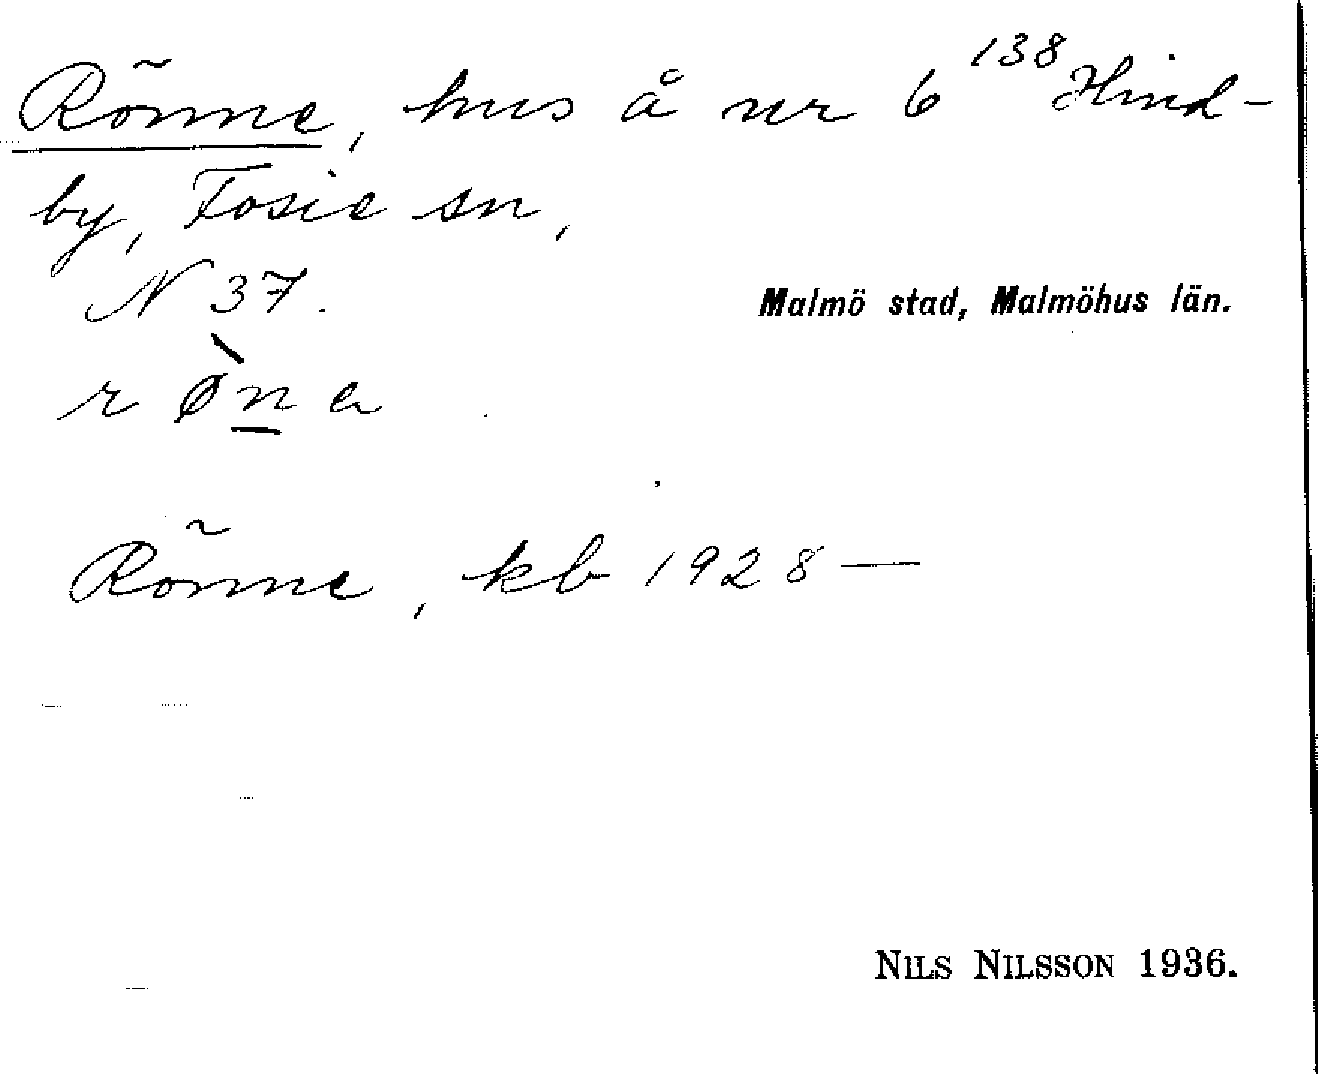 Rönne, hus å nr 6¹³⁸ Hind-
by, Fosie sn,
N 37.
Malmö stad, Malmöhus län.
rø̀n̲a
Rönne, kb 1928 —
NILS NILSSON 1936.